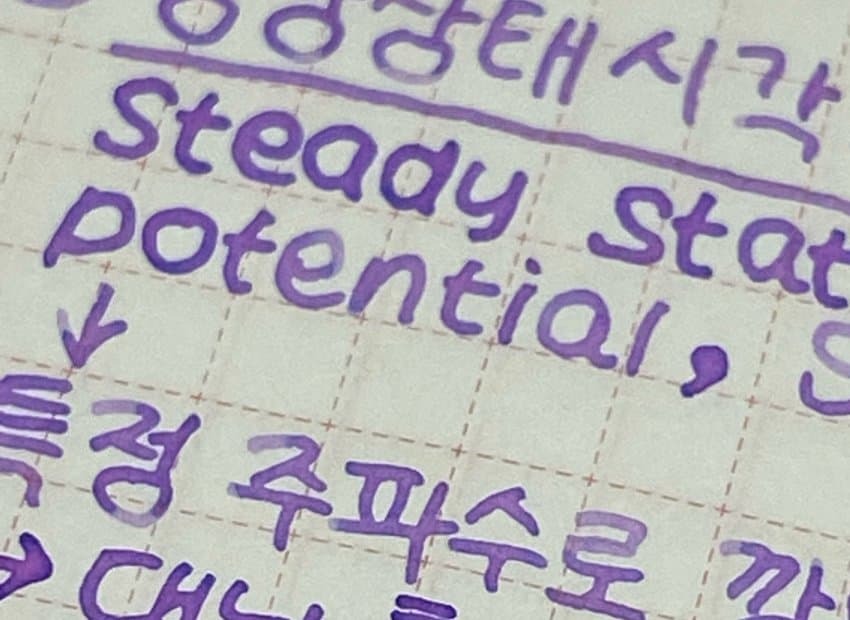 상태시각
Steady Stat
potential,
특정 주파수로 깜